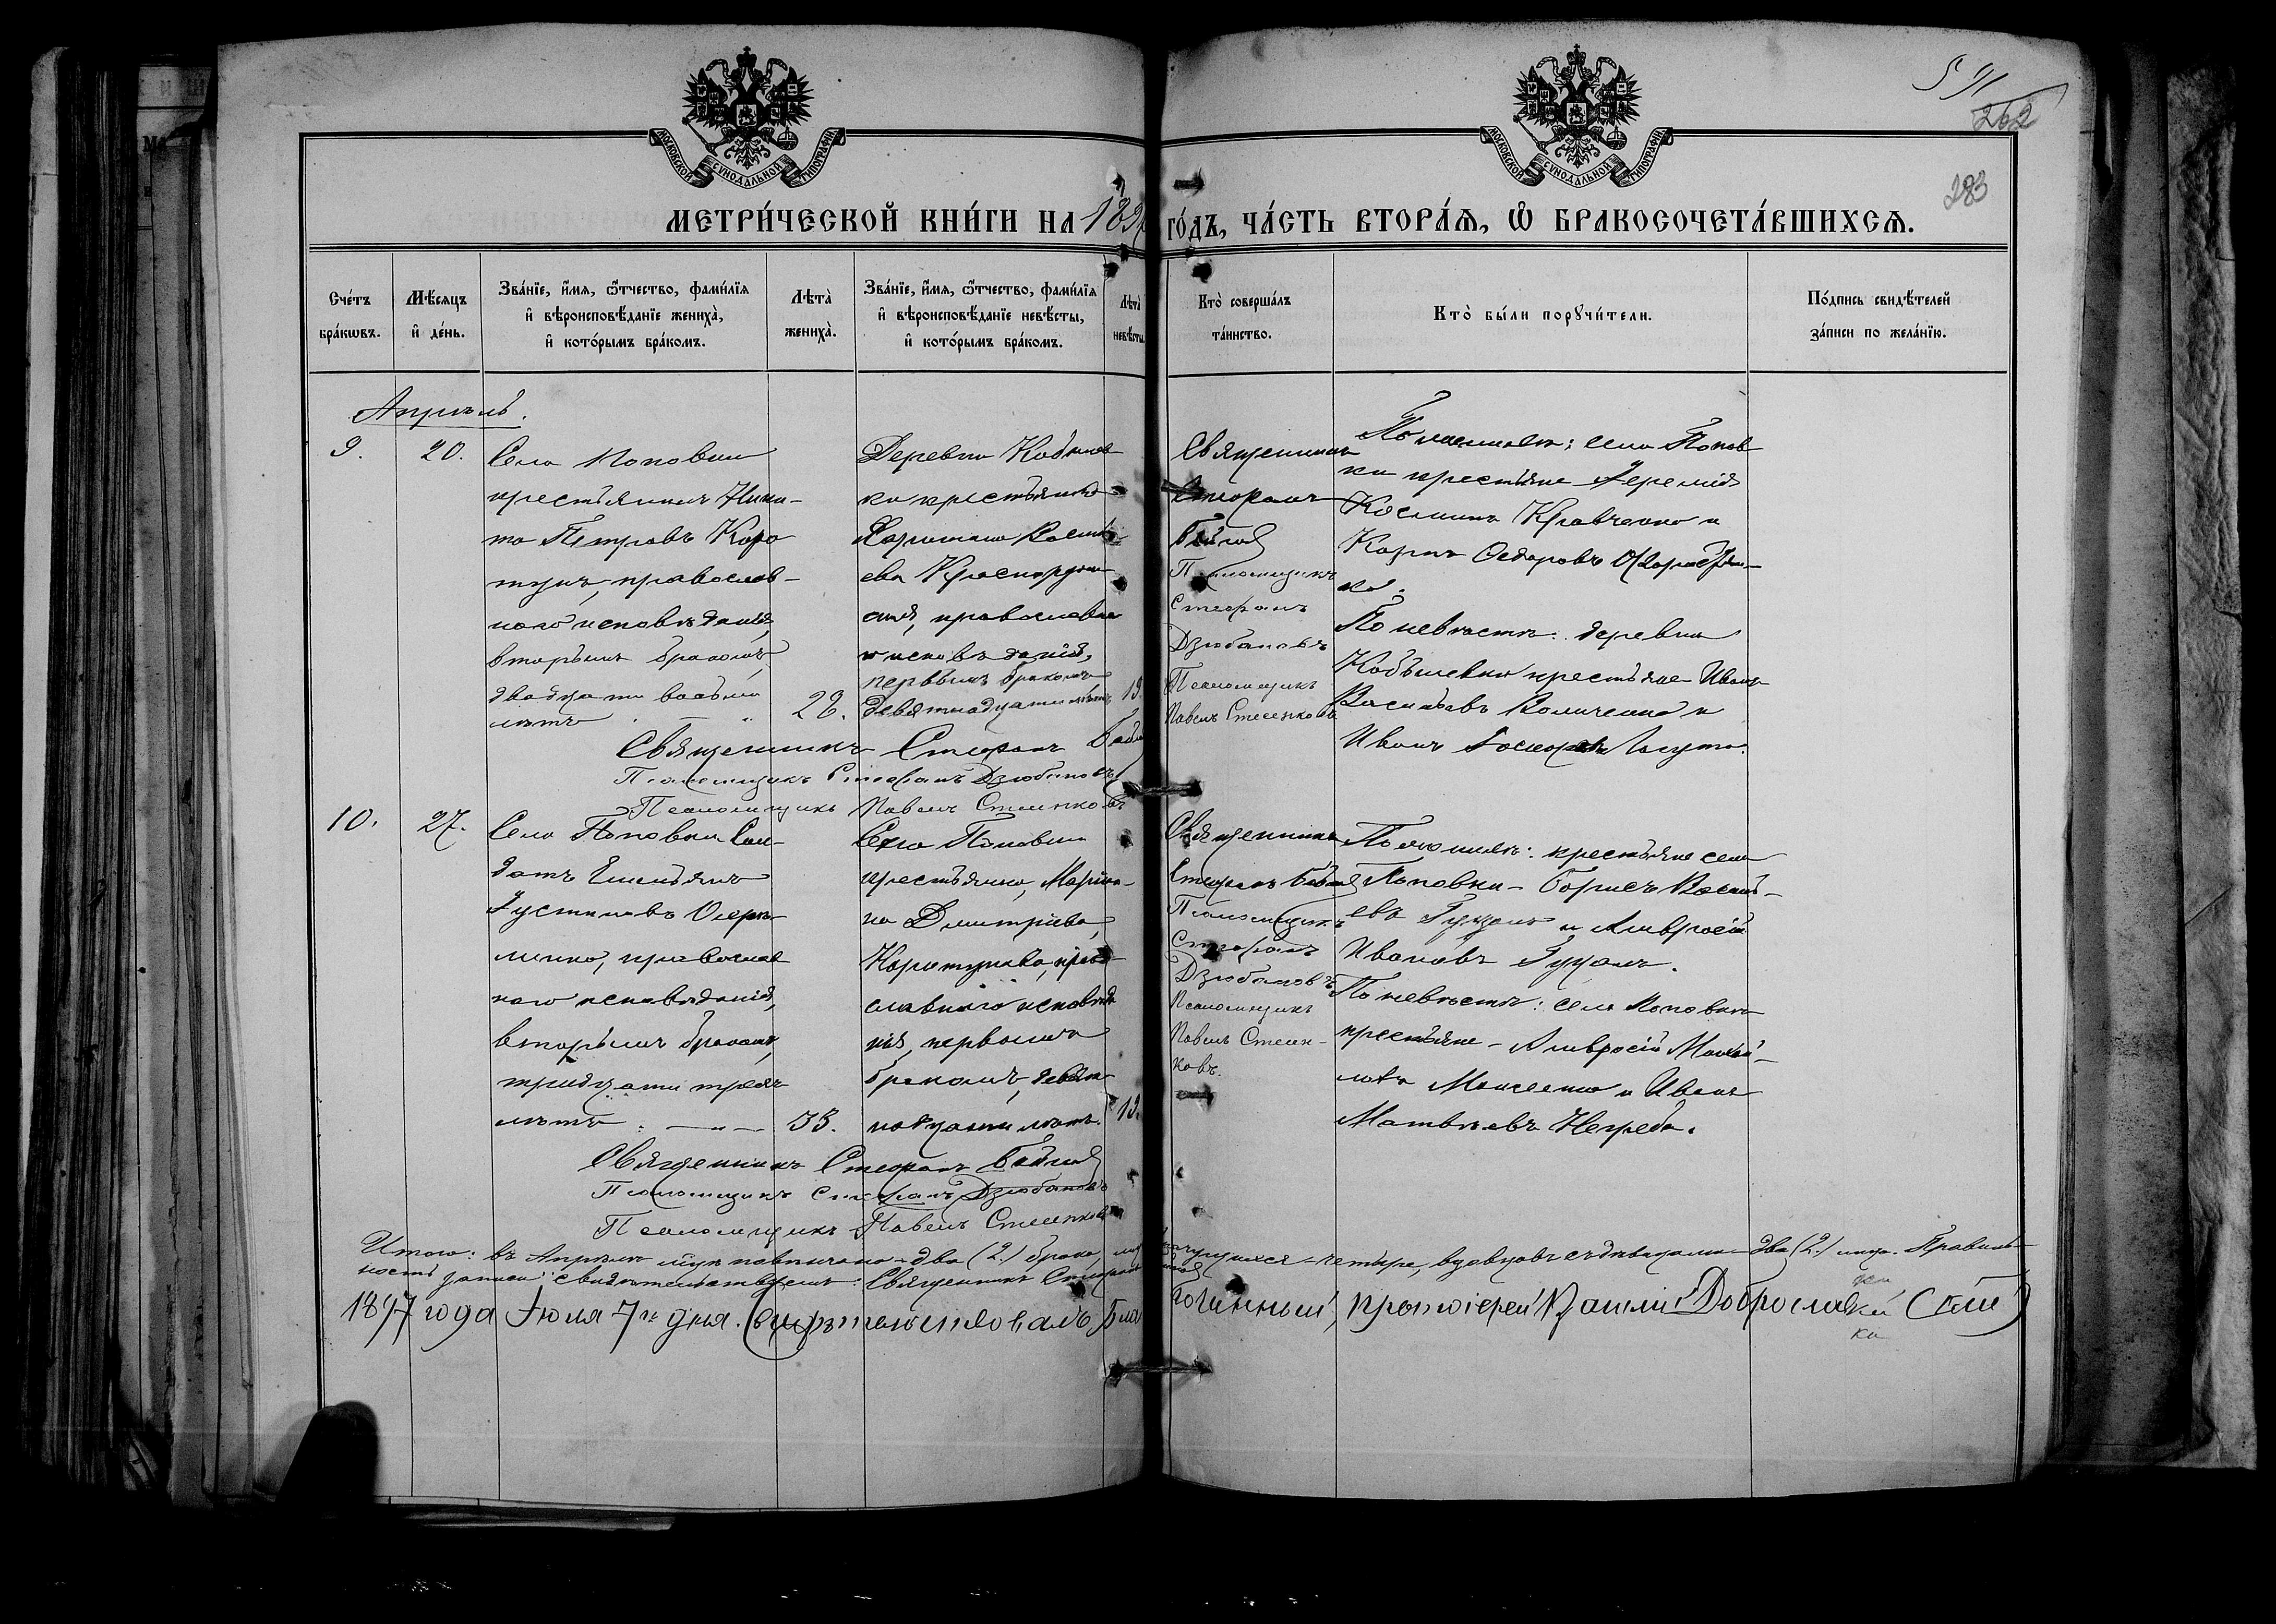 591
262
283
МОСКОВСКОЙ СѴНОДАЛЬНОЙ ТИПОГРАФІИ
МОСКОВСКОЙ СѴНОДАЛЬНОЙ ТИПОГРАФІИ
МЕТРИ́ЧЕСКОЙ КНИ́ГИ НА 1897 ГО́ДЪ, ЧА́СТЬ ВТОРА́Ѧ, Ѽ БРАКОСОЧЕТА́ВШИХСѦ.
Сче́тъ
бра́кѡвъ.
Мѣ́сяцъ
и҆ де́нь.
Зва́нїе, и҆́мѧ, ѻ҆́тчество, фами́лїѧ
и҆ вѣроисповѣ́данїе жениха̀,
и҆ кото́рымъ бра́комъ.
Лѣта̀
жениха̀.
Зва́нїе, и҆́мѧ, ѻ҆́тчество, фами́лїѧ
и҆ вѣроисповѣ́данїе невѣ́сты,
и҆ кото́рымъ бра́комъ.
Лѣта̀
невѣ́сты.
Кто̀ соверша́лъ
та́инство.
Кто̀ бы́ли порꙋчи́тели.
По́дпись свидѣ́телей
за́писи по жела́нїю.
Апрѣль.
9.
20.
Села Поповки
крестьянинъ Ники-
та Петровъ Коро
тунъ, православ-
наго исповѣданія,
вторымъ бракомъ
двадцати восьми
лѣтъ
28.
Деревни
ки крестьянка
Васильева
православна
го исповѣданія,
первымъ бракомъ
девятнадцати лѣтъ
19.
Священникъ
Стефанъ
Псаломщикъ
Стефанъ
Дзюбановъ
Псаломщикъ
Павелъ Стеценковъ
По женихѣ: села Попов
ки крестьяне Іеремія
Косминъ Кравченко и
Карпъ Федоровъ
По невѣстѣ: деревни
крестьяне Иванъ
Васильевъ и
Иванъ
Священникъ Стефанъ
Псаломщикъ Стефанъ Дзюбановъ
Псаломщикъ Павелъ Стеценковъ
10.
27.
Села Поповки Сол-
датъ Емельянъ
Іустиновъ
православ
наго исповѣданія,
вторымъ бракомъ,
тридцати трехъ
лѣтъ
33.
Села Поповки
крестьянка, Маріан-
на Димитріева
Коротунова, право-
славнаго исповѣда
нія, первымъ
бракомъ, девят-
надцати лѣтъ.
19.
Священникъ
Стефанъ
Псаломщикъ
Стефанъ
Дзюбановъ
Псаломщикъ
Павелъ Стецен-
ковъ.
По женихѣ: крестьяне села
Поповки – Борисъ Василь-
евъ Гуцалъ и Амвросій
Ивановъ Гуцалъ.
По невѣстѣ: села Поповки
крестьяне – Амвросій
Моисеенко и Иванъ
Матвѣевъ Негреба.
Священникъ Стефанъ
Псаломщикъ Стефанъ Дзюбановъ
Псаломщикъ Павелъ Стеценковъ
Итого: въ Апрѣлѣ м-цѣ повѣнчано – два (2.) брака, четыре, вдовцовъ съ дѣвицами – два (2.) лица. Правиль-
ность записи свидѣтельствуемъ: Священникъ Стефанъ
1897 года Іюля 7го дня. Свидѣтельствовалъ Благочинный, протоіерей Доброславскій